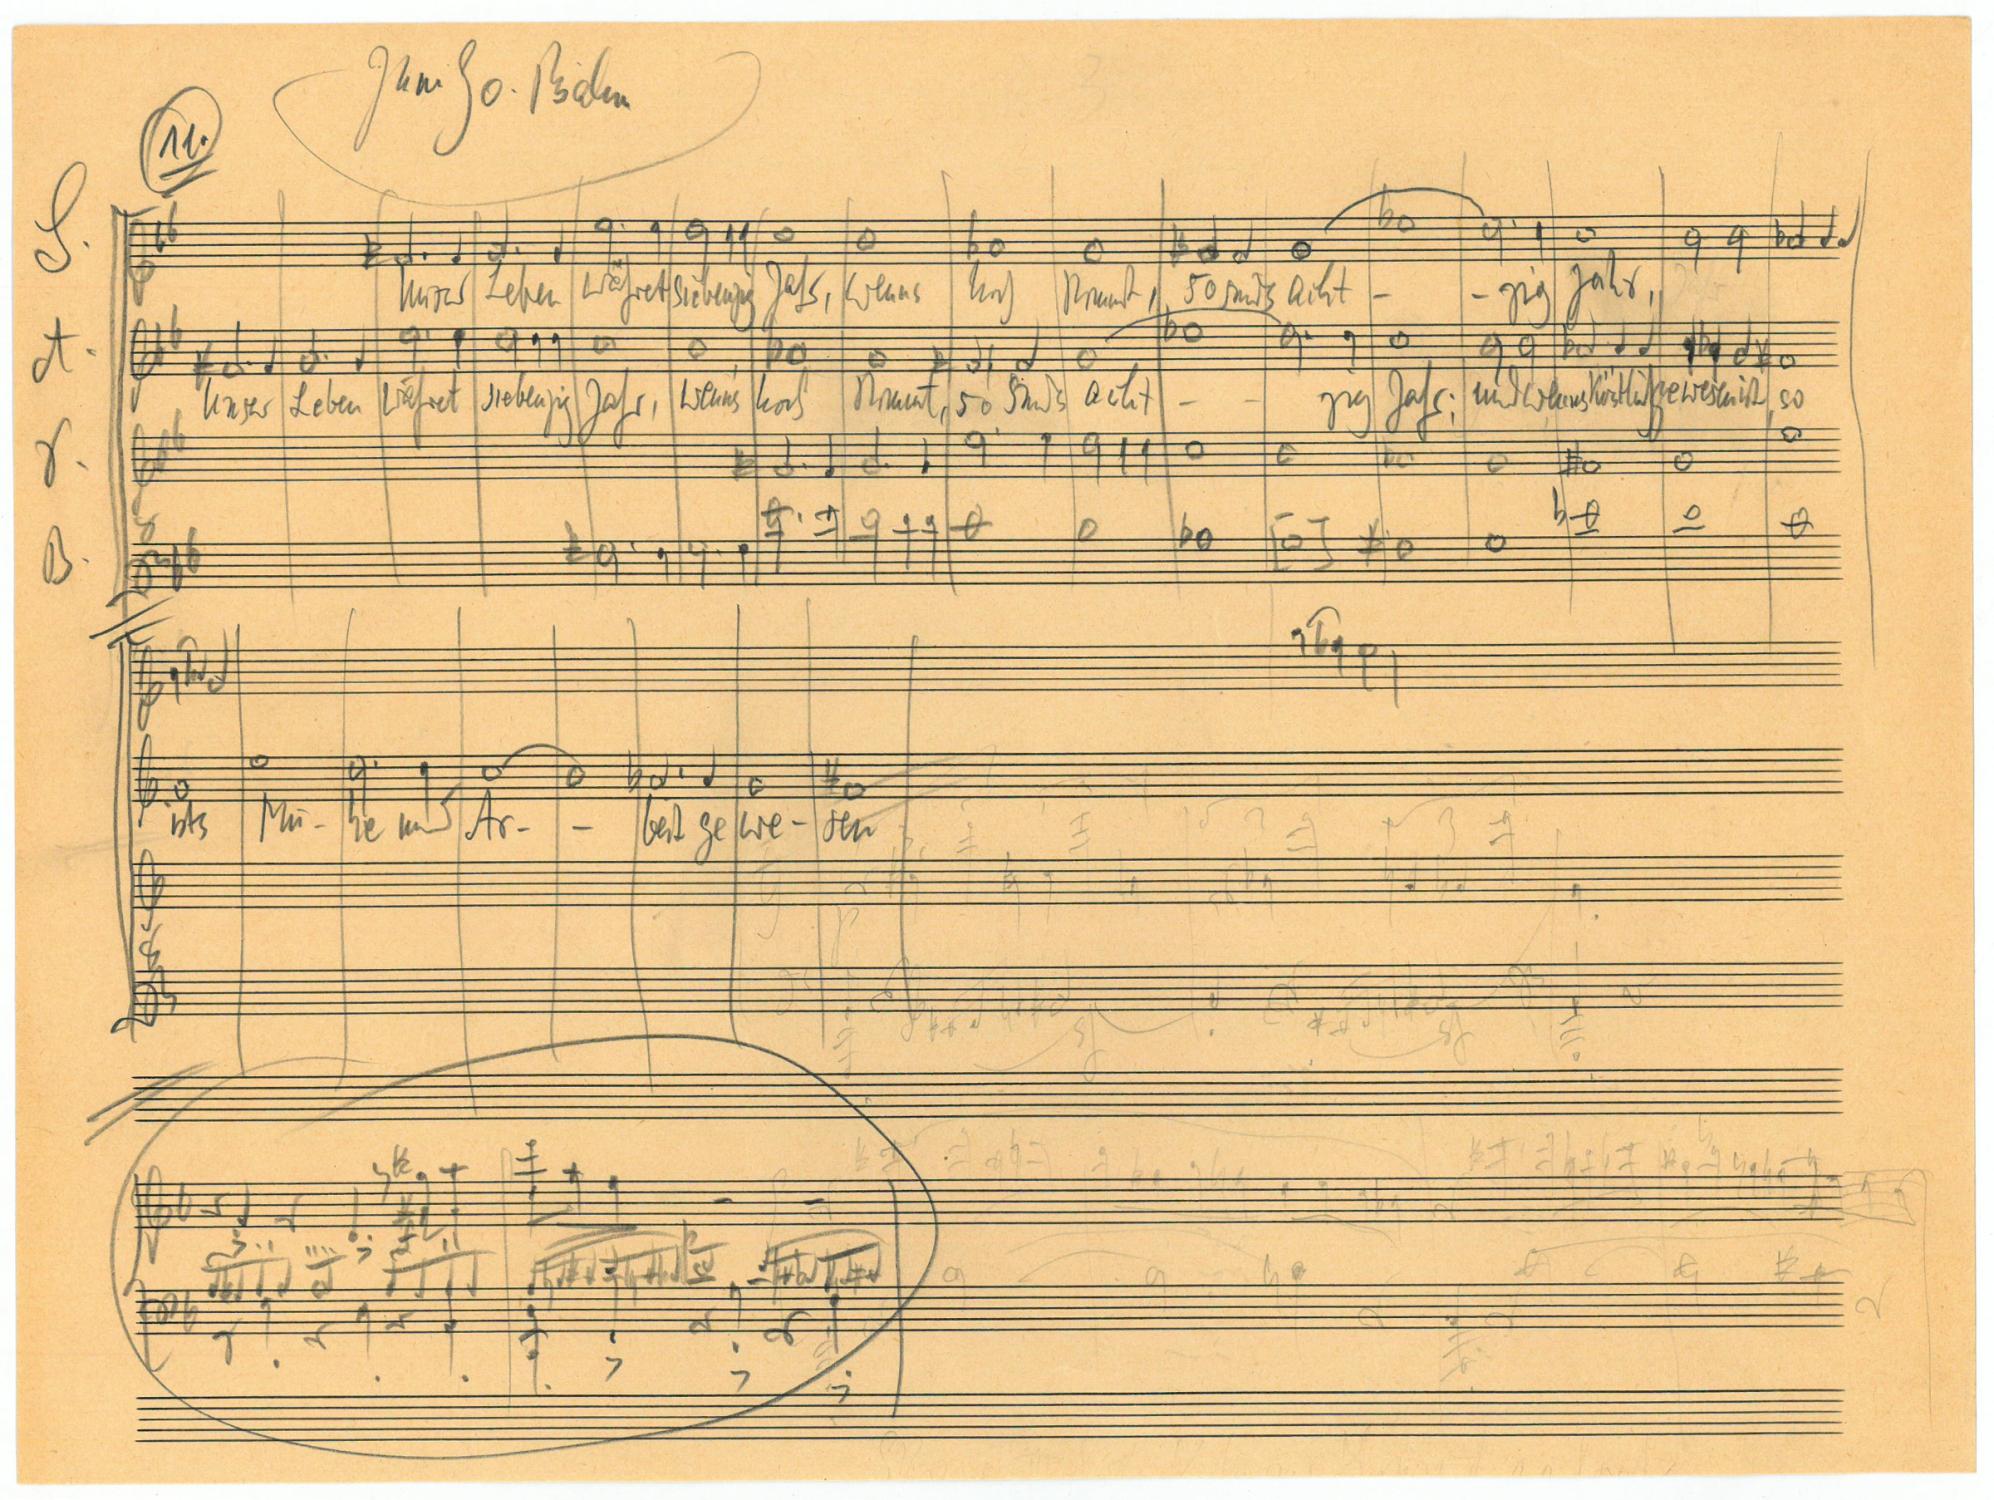 Zum 90. Psalm
11.
S.
Unser Leben währet siebenzig Jahr, wenns hoch kommt, so sinds acht - - zig Jahr,
A.
Unser Leben währet siebenzig Jahr, wenns hoch kommt, so sinds acht - - zig Jahr; und wenns köstlich gewesen ist, so
T.
B.
ists Mü- he und Ar- - beit ge we- sen